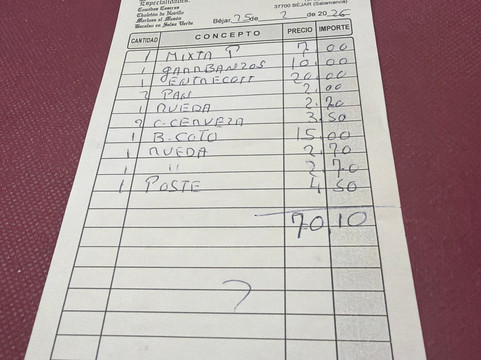 Especialidades:
Chuletón de Novillo
Bacalao en Salsa Verde
37700 BÉJAR (Salamanca)
Béjar, 25 de 2 de 2026
CANTIDAD CONCEPTO PRECIO IMPORTE
1 MIXTA P 7 00
1 GARBANZOS 10.00
1 ENTRECOTT 20.00
2 PAN 2.00
1 RUEDA 2.70
2 C-CERVEZA 3.50
1 B. COTO 15.00
1 RUEDA 2.70
1 " 2.70
1 POSTE 4 50
70,10